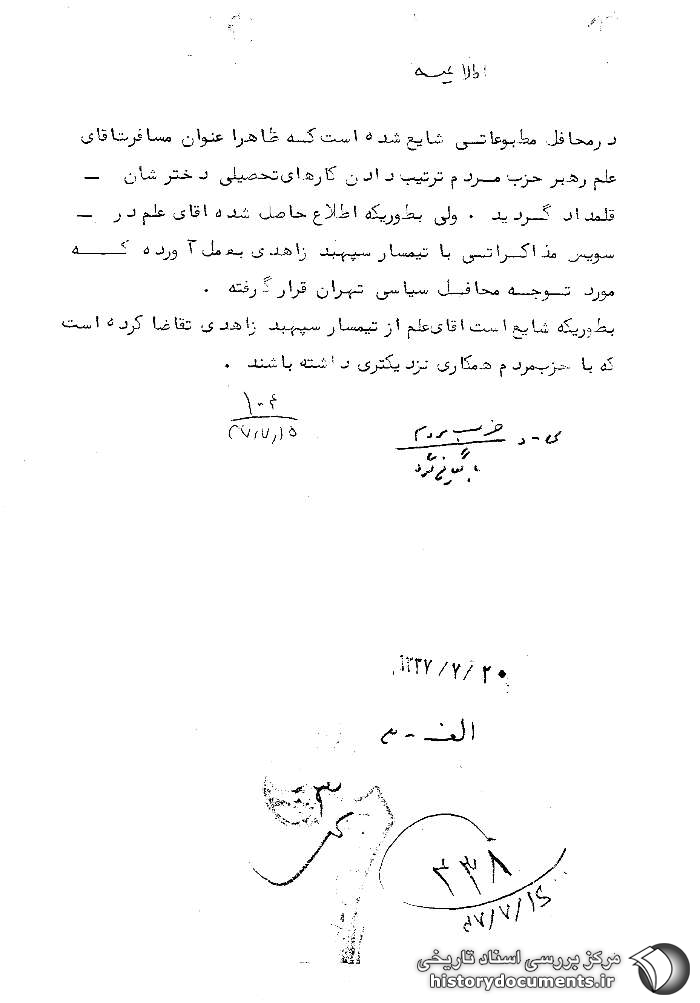 اطلاعیه
در محافل مطبوعاتی شایع شده است که ظاهرا عنوان مسافرت آقای
علم رهبر حزب مردم ترتیب دادن کارهای تحصیلی دختر شان –
قلمداد گردید . ولی بطوریکه اطلاع حاصل شده اقای علم در –
سویس مذاکراتی با تیمسار سپهبد زاهدی بعمل آورده که
مورد توجه محافل سیاسی تهران قرار گرفته .
بطوریکه شایع است اقای علم از تیمسار سپهبد زاهدی تقاضا کرده است
که با حزب مردم همکاری نزدیکتری داشته باشند .
۱۰۴
۳۷/۷/۱۵
حزب مردم
بایگانی شود
۱۳۳۷/۷/۲۰
الف - س
۳
۳۳۸
۳۷/۷/۱۶
مرکز بررسی اسناد تاریخی
historydocuments.ir